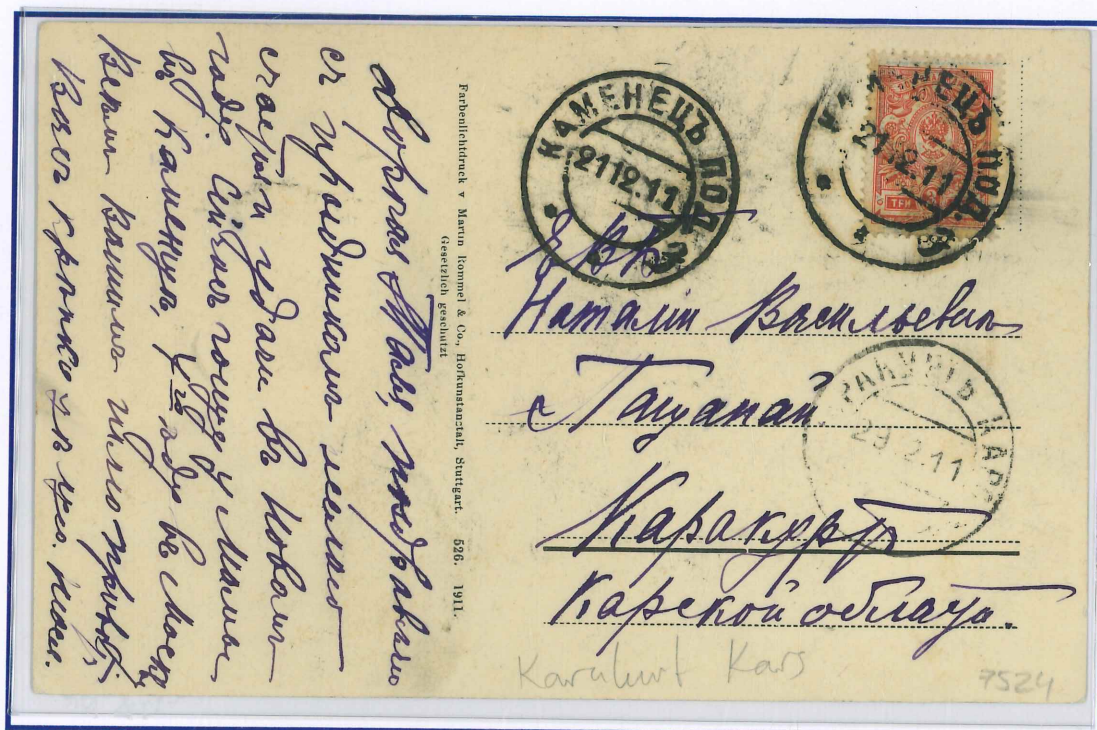 Дорогая Ната, поздравляю
съ праздникомъ желаю
счастья удачи въ Новомъ
году. Сейчасъ гощу у Мамы
въ Каменцѣ, еду въ Москву
Всѣмъ Вашимъ привѣтъ,
Васъ крѣпко цѣлую.
Farbenlichtdruck v Martin Rommel & Co., Hofkunstanstalt, Stuttgart. 526. 1911.
Gesetzlich geschützt
КАМЕНЕЦЪ ПОД.
21.12.11
КАМЕНЕЦЪ ПОД.
21.12.11
ТРИ
Наталіи Васильевнѣ
КАРАКУРТЪ КАР
29 2.11
Каракуртъ
Карской области.
Karakurt Kars
7524